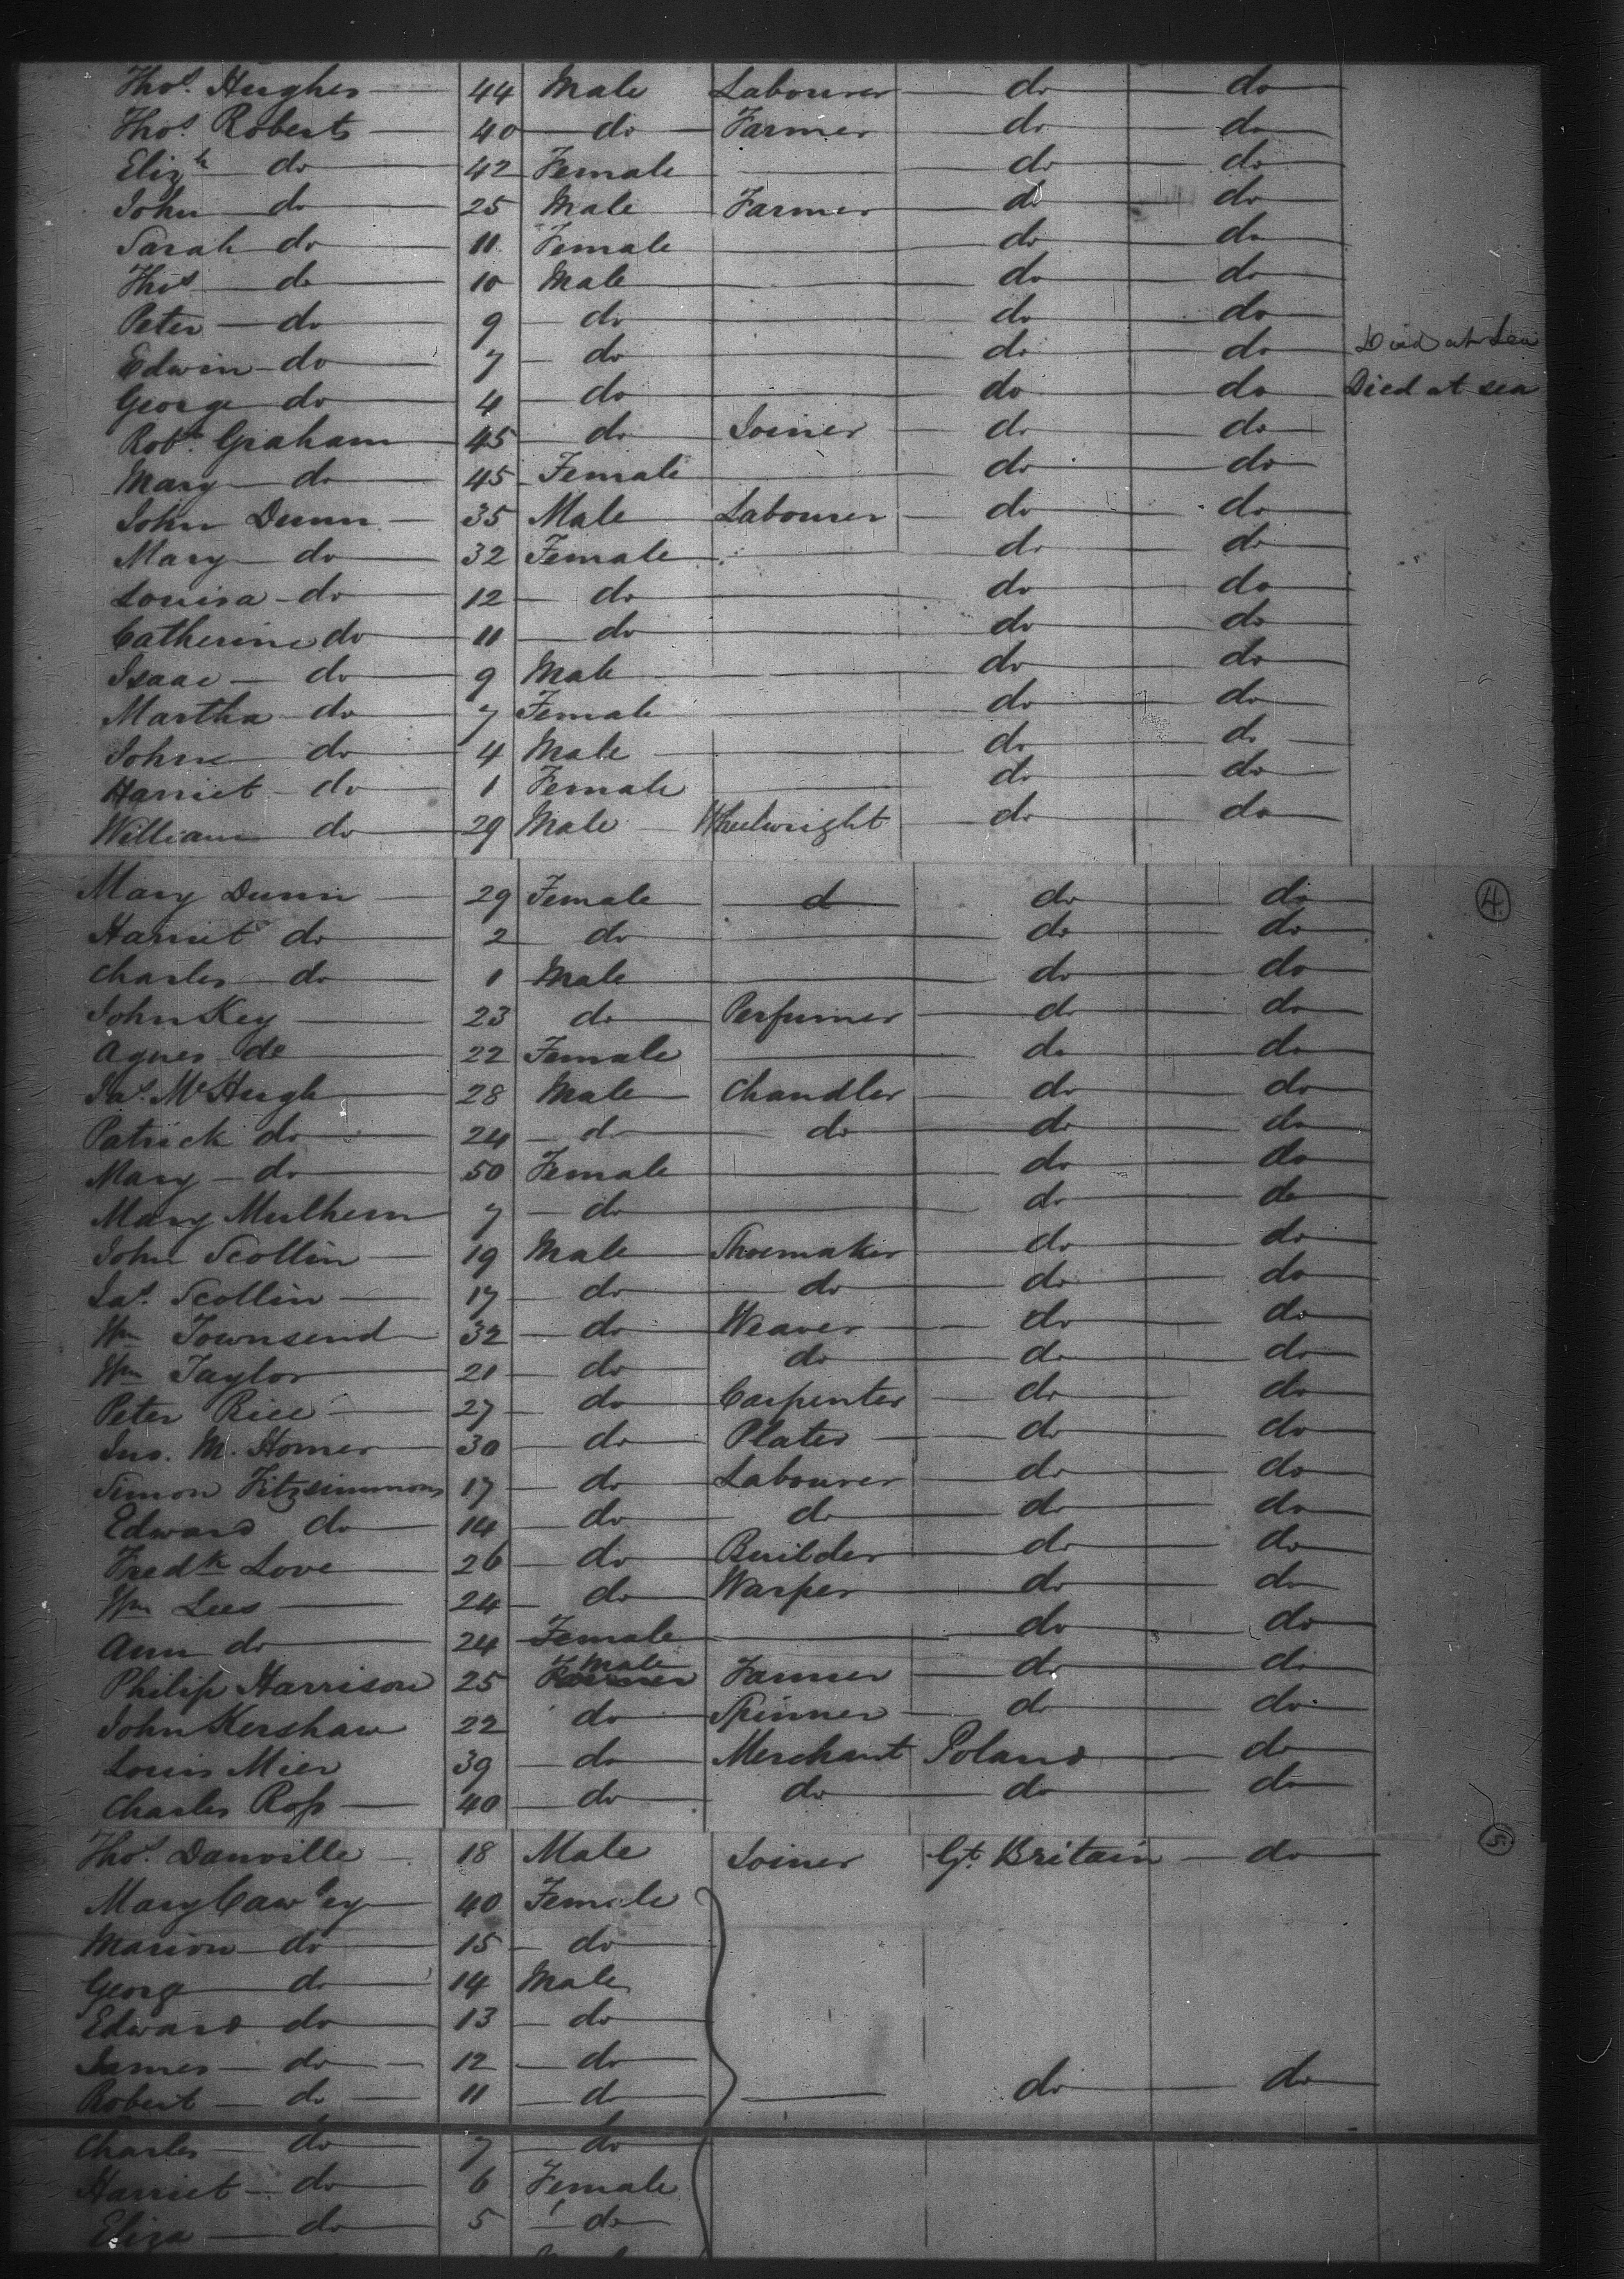 Thos. Hughes 44 Male Labourer do do
Thos. Roberts 40 do Farmer do do
Elizh do 42 Female do do
John do 25 Male Farmer do do
Sarah do 11 Female do do
Thos do 10 Male do do
Peter do 9 do do do
Edwin do 7 do do do Died at Sea
George do 4 do do do Died at sea
Robt. Graham 45 do Joiner do do
Mary do 45 Female do do
John Dunn 35 Male Labourer do do
Mary do 32 Female do do
Louisa do 12 do do do
Catherine do 11 do do do
Isaac do 9 Male do do
Martha do 7 Female do do
John do 4 Male do do
Harriet do 1 Female do do
William do 29 Male Wheelwright do do
Mary Dunn 29 Female d do do 4.
Harriet do 2 do do do
Charles do 1 Male do do
John Key 23 do Perfumer do do
Agnes do 22 Female do do
Jas. McHugh 28 Male Chandler do do
Patrick do 24 do do do do
Mary do 50 Female do do
Mary Mulhern 7 do do do
John Scollin 19 Male Shoemaker do do
Jas. Scollin 17 do do do do
Wm Townsend 32 do Weaver do do
Wm Taylor 21 do do do do
Peter Rice 27 do Carpenter do do
Jno. M. Homer 30 do Plater do do
Simon Fitzsimmons 17 do Labourer do do
Edward do 14 do do do do
Fredk Love 26 do Builder do do
Wm Lees 24 do Warper do do
Ann do 24 Female do do
Philip Harrison 25 Male Farmer do do
John Kershaw 22 do Spinner do do
Louis Mier 39 do Merchant Poland do
Charles Ross 40 do do do do
Thos. Danville 18 Male Joiner Gt. Britain do 5
Mary Cawley 40 Female
Marion do 15 do
George do 14 Male
Edward do 13 do
James do 12 do
Robert do 11 do do do
Charles do 7 do
Harriet do 6 Female
Eliza do 5 do